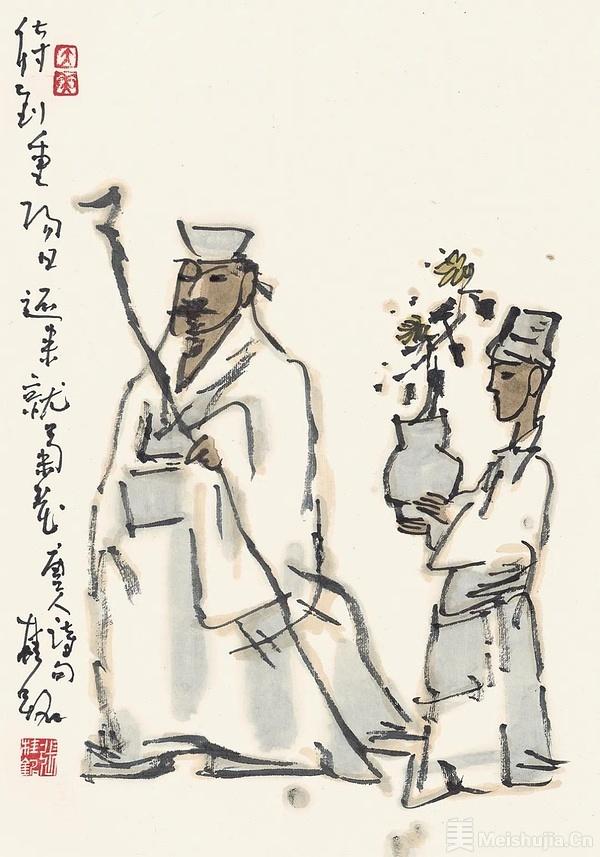 待到重阳日还来就菊花唐人诗句桂铭
张桂铭
美 Meishujia.Cn